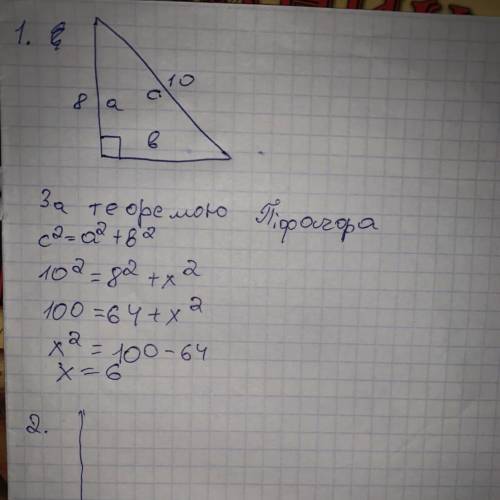 1.
10
c
8 a
в
За теоремою Піфагора
c²=a²+в²
10²=8²+x²
100=64+x²
x²=100-64
x=6
2.